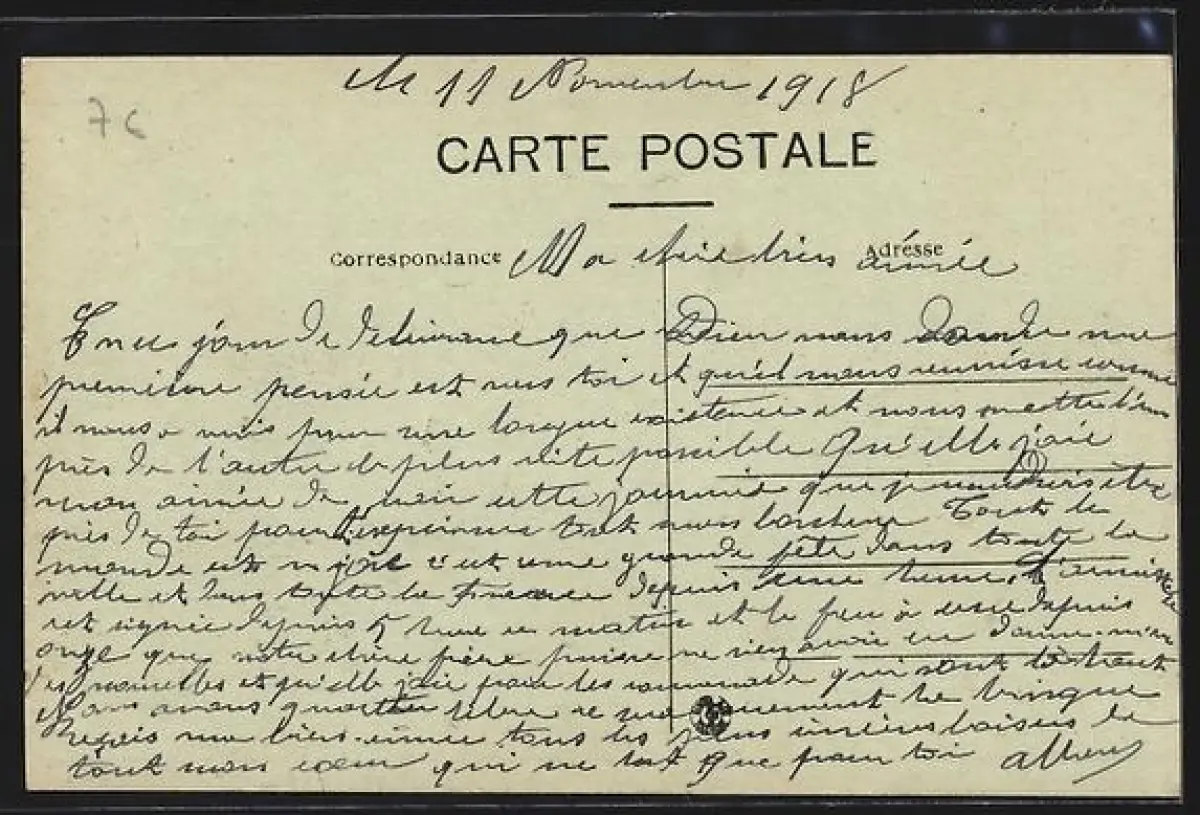 Le 11 Novembre 1918
76
CARTE POSTALE
Correspondance Adresse
Ma chérie bien aimée
En ce jour de délivrance que Dieu nous donne ma
première pensée est vers toi et qu'il nous réunisse comme
il nous a unis pour une longue existence et nous mette l'un
près de l'autre le plus vite possible Qu'elle joie
mon aimée de voir cette journée que je voudrais être
près de toi pour t'exprimer tout mon bonheur Tout le
monde est en joie c'est une grande fête dans toute la
ville et dans toute la France depuis une heure, l'armistice
est signée depuis 5 heure ce matin et le feu a cessé depuis
onze que notre chère frère puisse ne rien avoir en donne-moi
des nouvelles et qu'elle joie pour les camarades qui sont là-haut
Nous avons quartier libre ce
Reçois ma bien-aimée tous les plus sincères baisers de
tout mon cœur qui ne bat que pour toi Albert